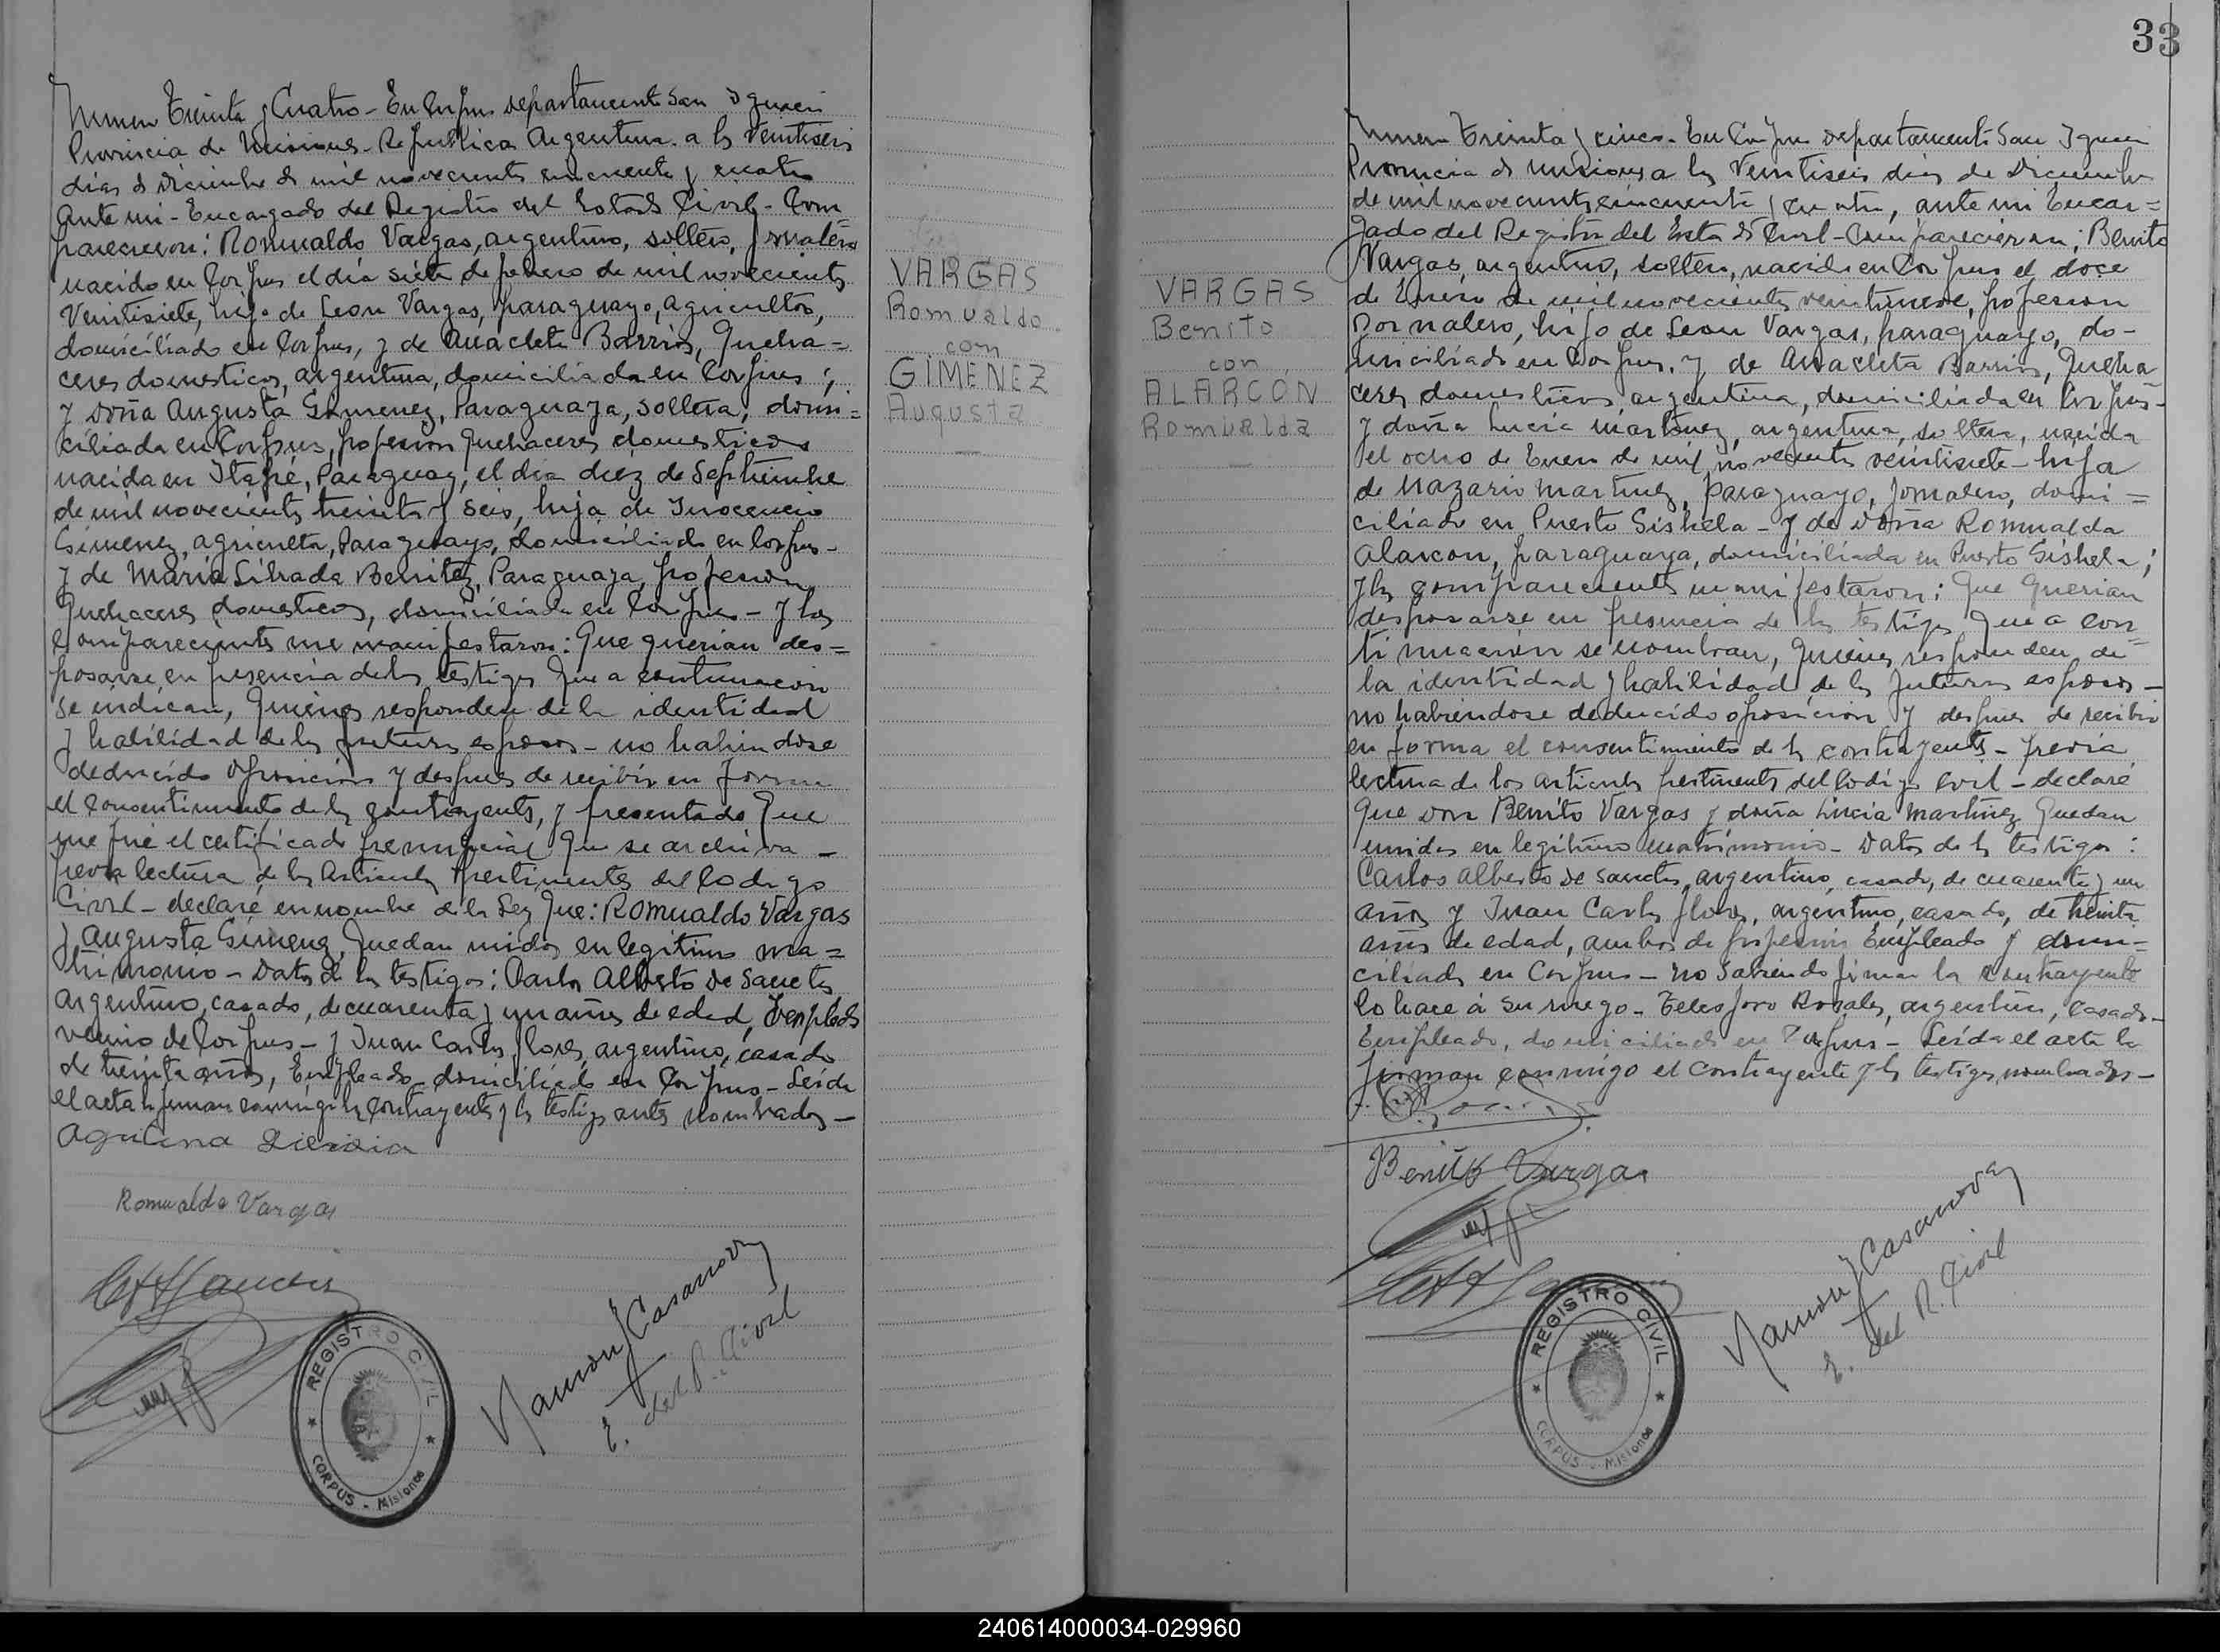 Numero Treinta y Cuatro - En Corpus departamento San Ignacio
Provincia de Misiones - Republica Argentina - a los Veintiseis
dias de Diciembre de mil novecientos cincuenta y cuatro
Ante mi - Encargado del Registro del Estado Civil - Com
parecieron: Romualdo Vargas, argentino, soltero, jornalero
nacido en Corpus el día siete de de mil novecientos
Veintisiete, hijo de Leon Vargas, paraguayo, agricultor,
domiciliado en Corpus, y de Anacleta Barrios, Queha=
ceres domesticos, argentina, domiciliada en Corpus;
y Doña Augusta Gimenez, Paraguaya, soltera, domi=
ciliada en Corpus, profesion quehaceres domesticos
nacida en Itapé, Paraguay, el dia diez de Septiembre
de mil novecientos treinta y seis, hija de Inocencio
Gimenez, agricultor, Paraguayo, domiciliado en Corpus -
y de Maria Librada Benitez, Paraguaya, profesion
Quehaceres domesticos, domiciliada en Corpus - y los
Comparecientes me manifestaron: Que querian des=
posarse, en presencia de los testigos que a continuacion
se indican, Quienes responden de la identidad
y habilidad de los futuros esposos - no habiendose
deducido oposicion y despues de recibir en forma
el consentimiento de los contrayentes, y presentado Que
me fué el certificado prenupcial que se archiva -
previa lectura de los Articulos pertinentes del Codigo
Civil - declaré en nombre de la Ley Que: Romualdo Vargas
y Augusta Gimenez, Quedan unidos en legitimo ma=
trimonio - Datos de los testigos: Carlos Alberto De Sanctis
argentino, casado, de cuarenta y un años de edad, Empleado
vecino de Corpus - y Juan Carlos Flores, argentino, casado
de treinta años, Empleado domiciliado en Corpus - Leida
el acta la firman conmigo los contrayentes y los testigos antes nombrados -
Romualdo Vargas
Ramon J Casanova
E. del R. Civil
REGISTRO CIVIL
CORPUS - Misiones
VARGAS
Romualdo
con
GIMENEZ
Augusta
33
VARGAS
Benito
con
ALARCÓN
Romualda
Numero Treinta y cinco - En Corpus departamento San Ignacio
Provincia de Misiones a los Veintiseis dias de Diciembre
de mil novecientos cincuenta y cuatro, ante mi Encar=
gado del Registro del Estado Civil - Comparecieron; Benito
Vargas, argentino, soltero, nacido en Corpus el doce
de Enero de mil novecientos veintinueve, profesion
Jornalero, hijo de Leon Vargas, paraguayo, do-
miciliado en Corpus, y de Anacleta Barrios, Queha
ceres domesticos, argentina, domiciliada en Corpus -
y doña Lucia Martinez, argentina, soltera, nacida
el ocho de Enero de mil novecientos veintisiete - hija
de Nazario Martinez, paraguayo, Jornalero, domi=
ciliado en Puerto Gisbela - y de Doña Romualda
Alarcon, paraguaya, domiciliada en Puerto Gisbela;
y los comparecientes manifestaron: Que Querian
desposarse en presencia de los testigos que a con=
tinuación se nombran, Quienes responden de
la identidad y habilidad de los futuros esposos -
no habiendose deducido oposicion y despues de recibir
en forma el consentimiento de los contrayentes - previa
lectura de los articulos pertinentes del Codigo Civil - declaré
Que Don Benito Vargas y doña Lucia Martinez Quedan
unidos en legitimo matrimonio - Datos de los testigos:
Carlos Alberto De Sanctis, argentino, casado, de cuarenta y un
años y Juan Carlos Flores, argentino, casado, de treinta
años de edad, ambos de profesion Empleado y domi=
ciliados en Corpus - no sabiendo firmar la contrayente
lo hace á su ruego - Telesforo Rosales, argentino, casado -
Empleado, domiciliado en Corpus - Leida el acta la
firman conmigo el contrayente y los testigos nombrados -
Benito Vargas
Ramon J Casanova
E. del R. Civil
REGISTRO CIVIL
CORPUS - Misiones
240614000034-029960